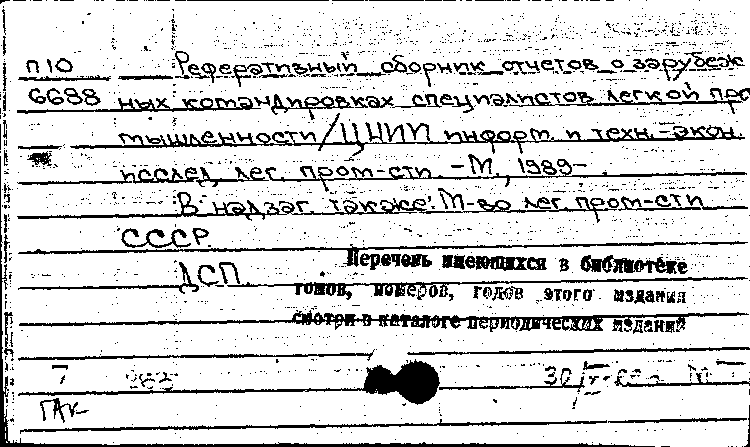 П10 Реферативный сборник отчетов о зарубеж
6688 ных командировках специалистов легкой про
мышленности/ЦНИИ информ. и техн.-экон.
исслед. лег. пром-сти. -М., 1989- .
В надзаг. также: М-во лег. пром-сти
СССР
ДСП.
Перечень имеющихся в библиотеке
томов, номеров, годов этого издания
смотри в каталоге периодических изданий
7 30
ГАК